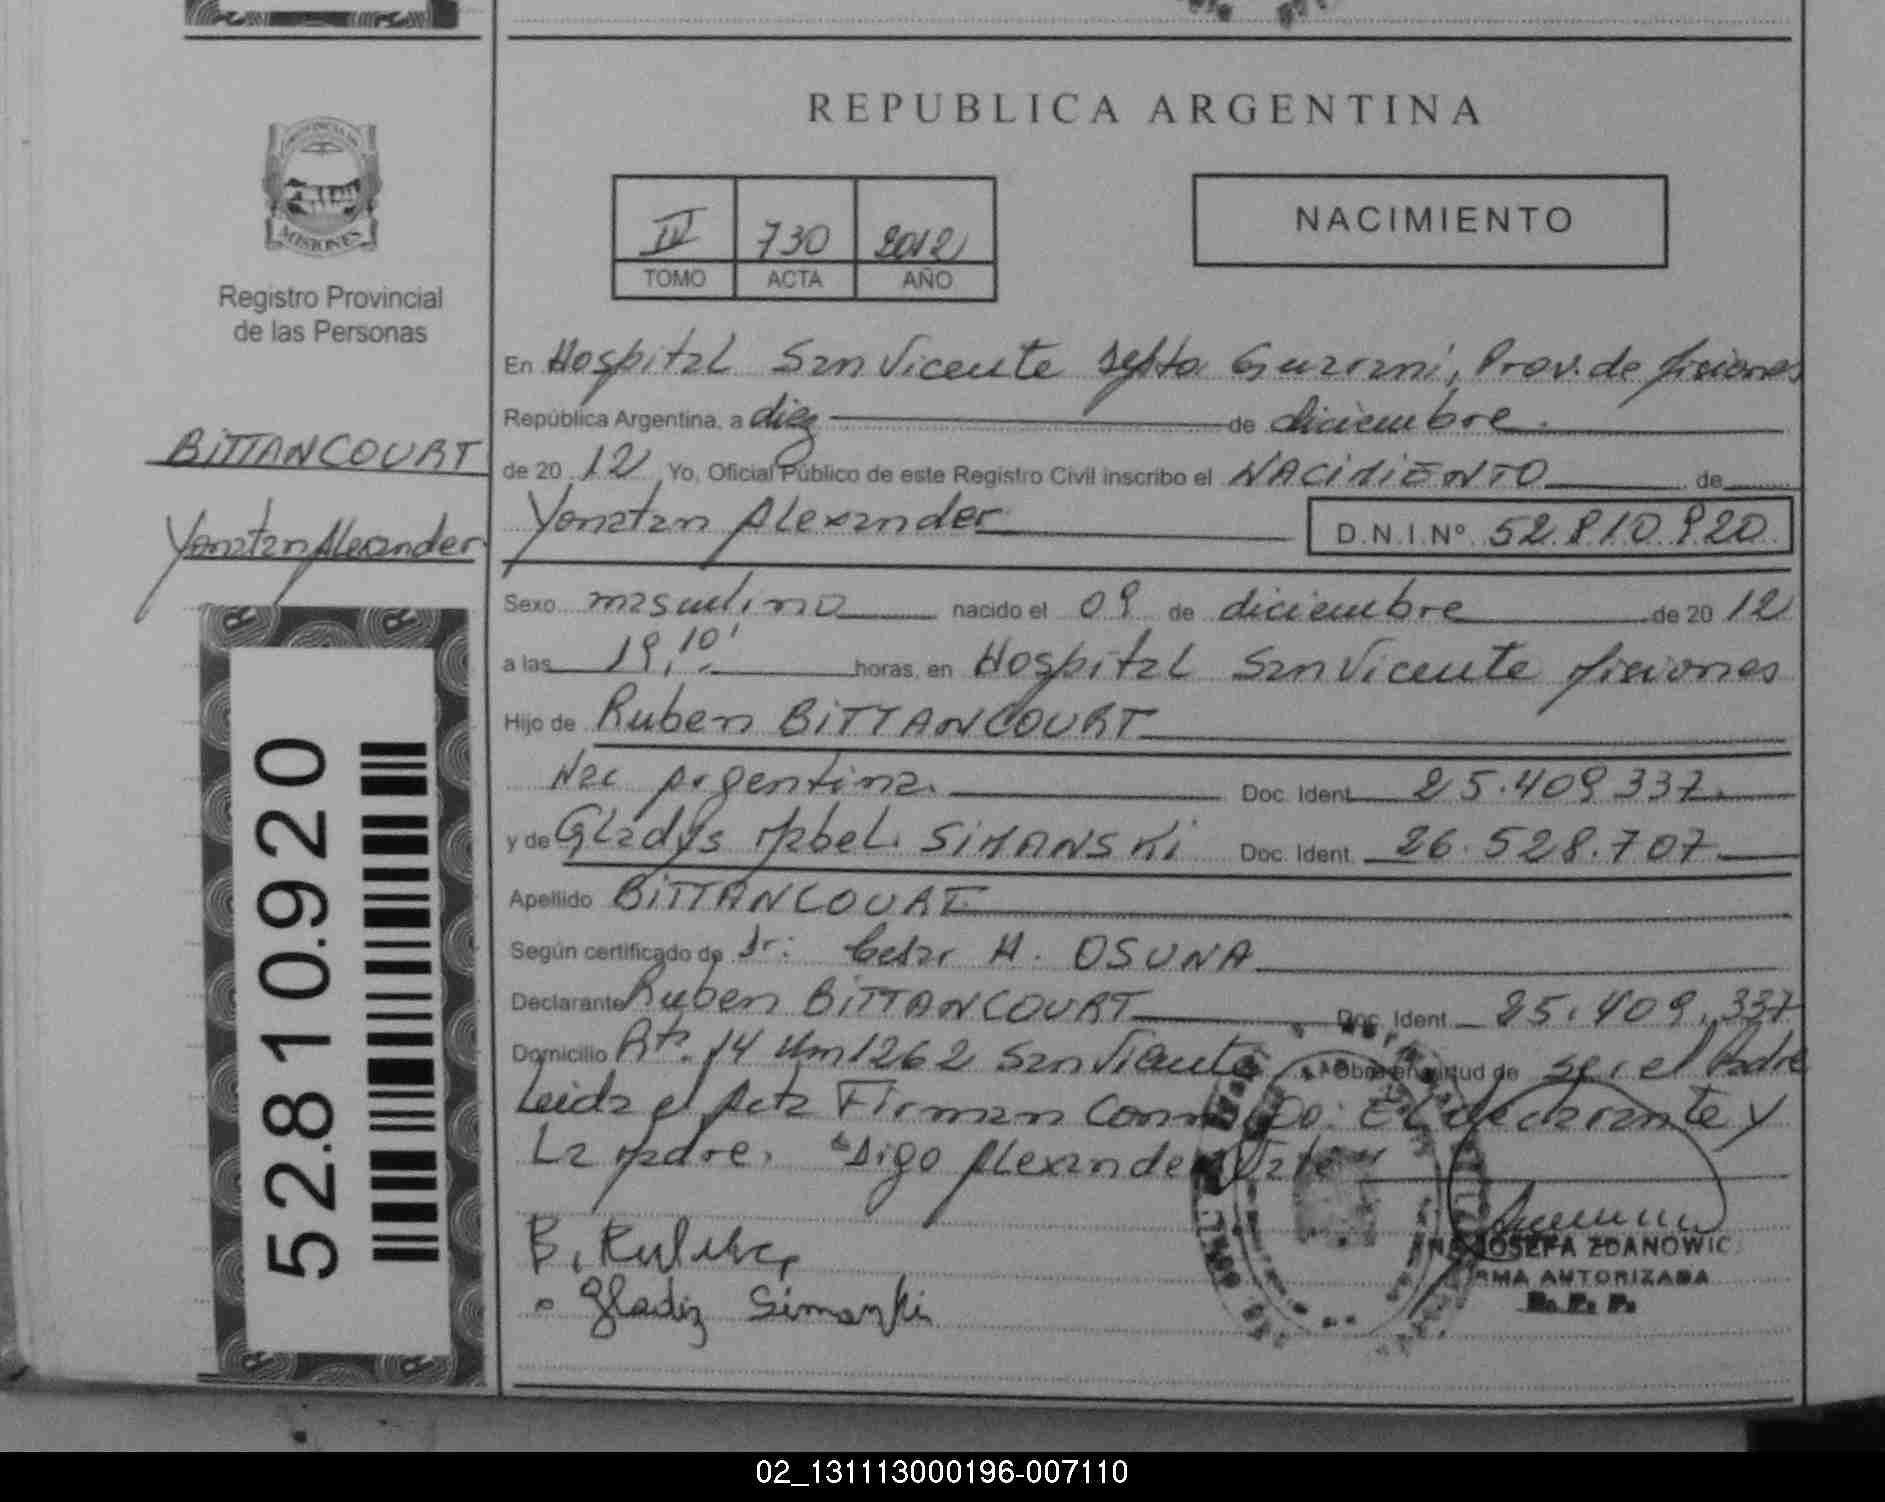 PROVINCIA DE
MISIONES
Registro Provincial
de las Personas
BITTANCOURT
Yonatan Alexander
52.810.920
REPUBLICA ARGENTINA
IV 730 2012
TOMO ACTA AÑO
NACIMIENTO
En Hospital San Vicente Dpto Guarani, Prov. de Misiones
República Argentina, a diez de diciembre
de 20 12 Yo, Oficial Público de este Registro Civil inscribo el NACIMIENTO de
Yonatan Alexander D.N.I.Nº 52.810.920
Sexo masculino nacido el 09 de diciembre de 20 12
a las 19,10' horas, en Hospital San Vicente Misiones
Hijo de Ruben BITTANCOURT
Nac Argentina. Doc. Ident. 25.409.337.
y de Gladys Mabel SIMANSKI Doc. Ident. 26.528.707
Apellido BITTANCOURT
Según certificado de Dr: Cesar H. OSUNA
Declarante Ruben BITTANCOURT Doc. Ident. 25.409.337
Domicilio Rta. 14 Km 1262 San Vicente Obra en virtud de ser el Padre
Leida el Acta Firman Conmigo: El declarante y
La Madre. "Digo Alexander Vale"
B. Ruben
Gladiz Simanski
JOSEFA ZDANOWIC
FIRMA AUTORIZADA
R. P. P.
02_131113000196-007110